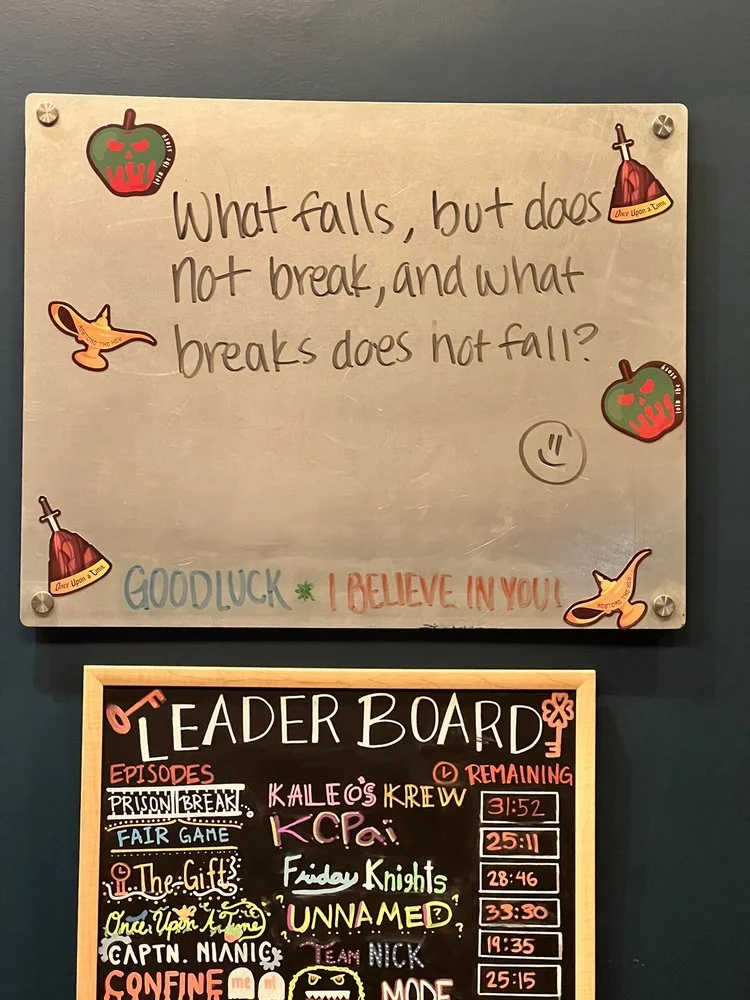 What falls, but does
not break, and what
breaks does not fall?
Once Upon a Time
Once Upon a Time
GOODLUCK * I BELIEVE IN YOU!
LEADER BOARD
EPISODES
REMAINING
PRISON BREAK
KALEO'S KREW
31:52
FAIR GAME
KCPai
25:11
The Gift
Friday Knights
28:46
Once Upon A Time
"UNNAMED"
33:30
CAPTN. NIANIC
TEAM NICK
19:35
CONFINE
me
MODE
25:15